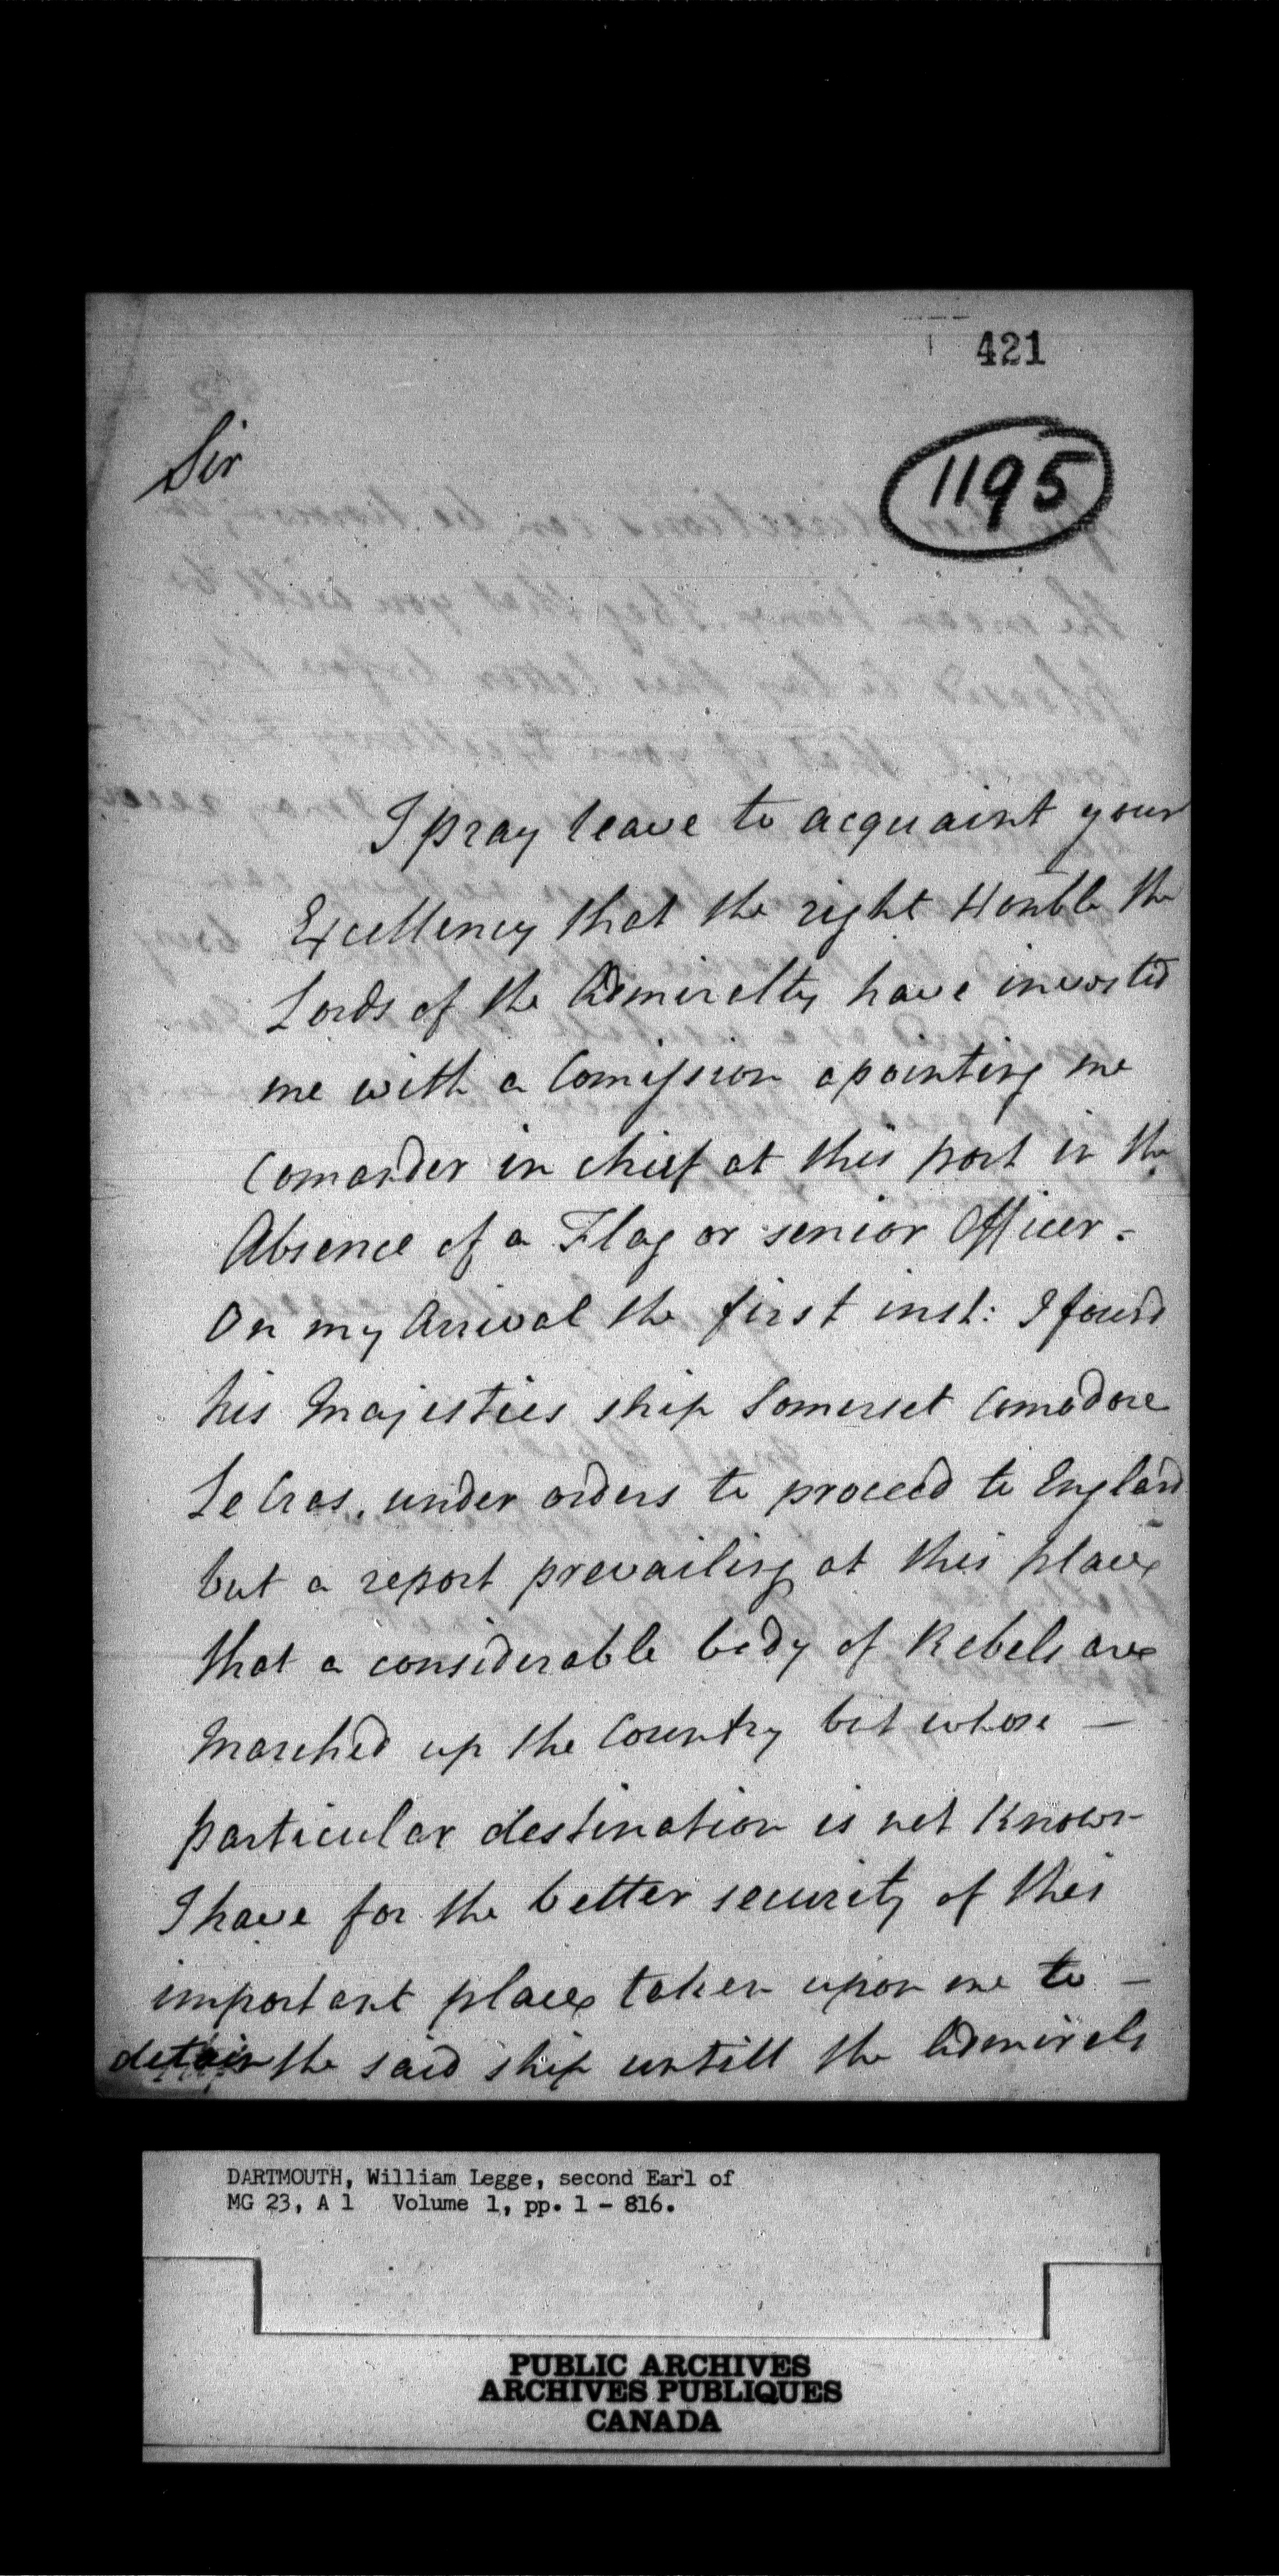 421
1195
Sir
I pray leave to acquaint your
Excellency that the right Honble the
Lords of the Admirelty have invested
me with a Comission apointing me
Comander in chief at this port in the
Absence of a Flag or senior Officer -
On my Arrival the first inst: I found
his Majesties ship Somerset Comodore
Le Cras, under orders to proceed to England
but a report prevailing at this place
that a considerable body of Rebels are
Marched up the Country but whose —
particular destination is not Known
I have for the better security of this
important place taken upon me to —
detain the said ship untill the Admirals
DARTMOUTH, William Legge, second Earl of
MG 23, A 1 Volume 1, pp. 1 - 816.
PUBLIC ARCHIVES
ARCHIVES PUBLIQUES
CANADA